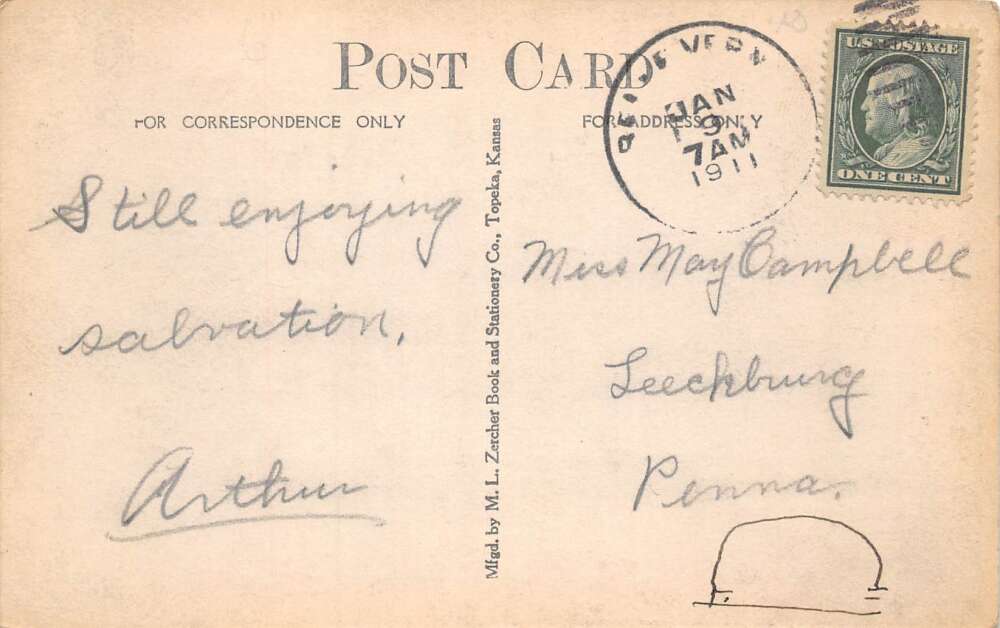 POST CARD
FOR CORRESPONDENCE ONLY
FOR ADDRESS ONLY
JAN
9
7 AM
1911
U.S. POSTAGE
ONE CENT
Still enjoying
salvation,
Arthur
Mfgd. by M. L. Zercher Book and Stationery Co., Topeka, Kansas
Miss May Campbell
Leechburg
Penna.